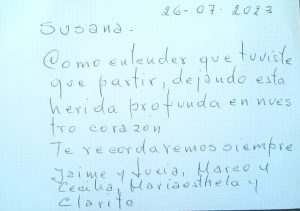 26-07-2023
Susana.
Como entender que tuviste
que partir, dejando esta
herida profunda en nues
tro corazon
Te recordaremos siempre
Jaime y Lucia, Marco y
Cecilia, Mariaesthela y
Clarito